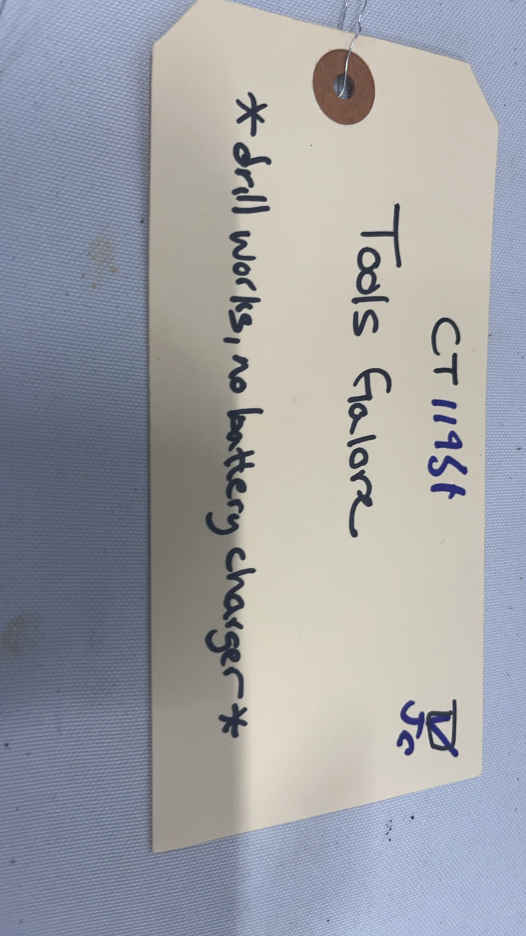 CT
Tools Galore
*drill works, no battery charger*
JC